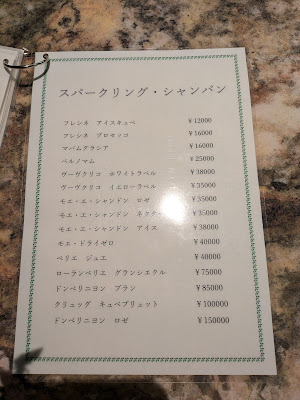 スパークリング・シャンパン
フレシネ アイスキュベ ¥12000
フレシネ プロセッコ ¥16000
マバムグラシア ¥16000
ベルノマム ¥25000
ヴーヴクリコ ホワイトラベル ¥38000
ヴーヴクリコ イエローラベル ¥35000
モエ・エ・シャンドン ロゼ ¥35000
モエ・エ・シャンドン ネクター ¥35000
モエ・エ・シャンドン アイス ¥38000
モエ・ドライゼロ ¥40000
ペリエ ジュエ ¥40000
ローランペリエ グランシエクル ¥75000
ドンペリニヨン ブラン ¥85000
クリュッグ キュベブリュット ¥100000
ドンペリニヨン ロゼ ¥150000